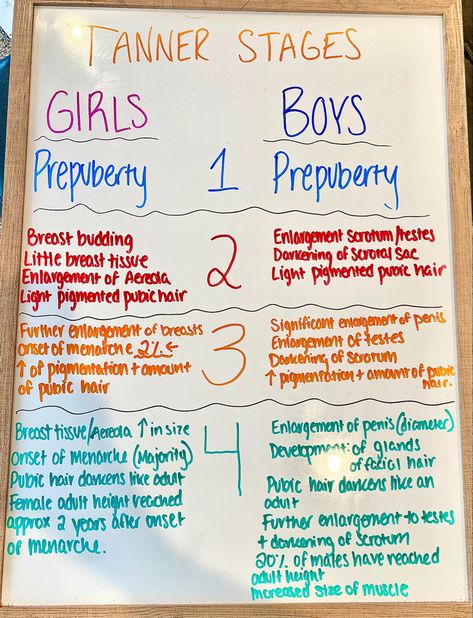 TANNER STAGES
GIRLS
BOYS
Prepuberty
1
Prepuberty
Breast budding
Little breast tissue
Enlargement of Aereola
Light pigmented pubic hair
2
Enlargement scrotum/testes
Darkening of scrotal sac
Light pigmented pubic hair
Further enlargement of breasts
onset of menarche
↑ of pigmentation + amount
of pubic hair
3
Significant enlargement of penis
Enlargement of testes
Darkening of scrotum
↑ pigmentation + amount of pubic
hair.
Breast tissue/Aereola ↑ in size
onset of menarche (Majority)
Pubic hair dancens like adult
Female adult height reached
approx 2 years after onset
of menarche.
4
Enlargement of penis (diameter)
Development of glands
of facial hair
Pubic hair dancens like an
adult
Further enlargement to testes
+ darkening of scrotum
20% of males have reached
adult height
Increased size of muscle